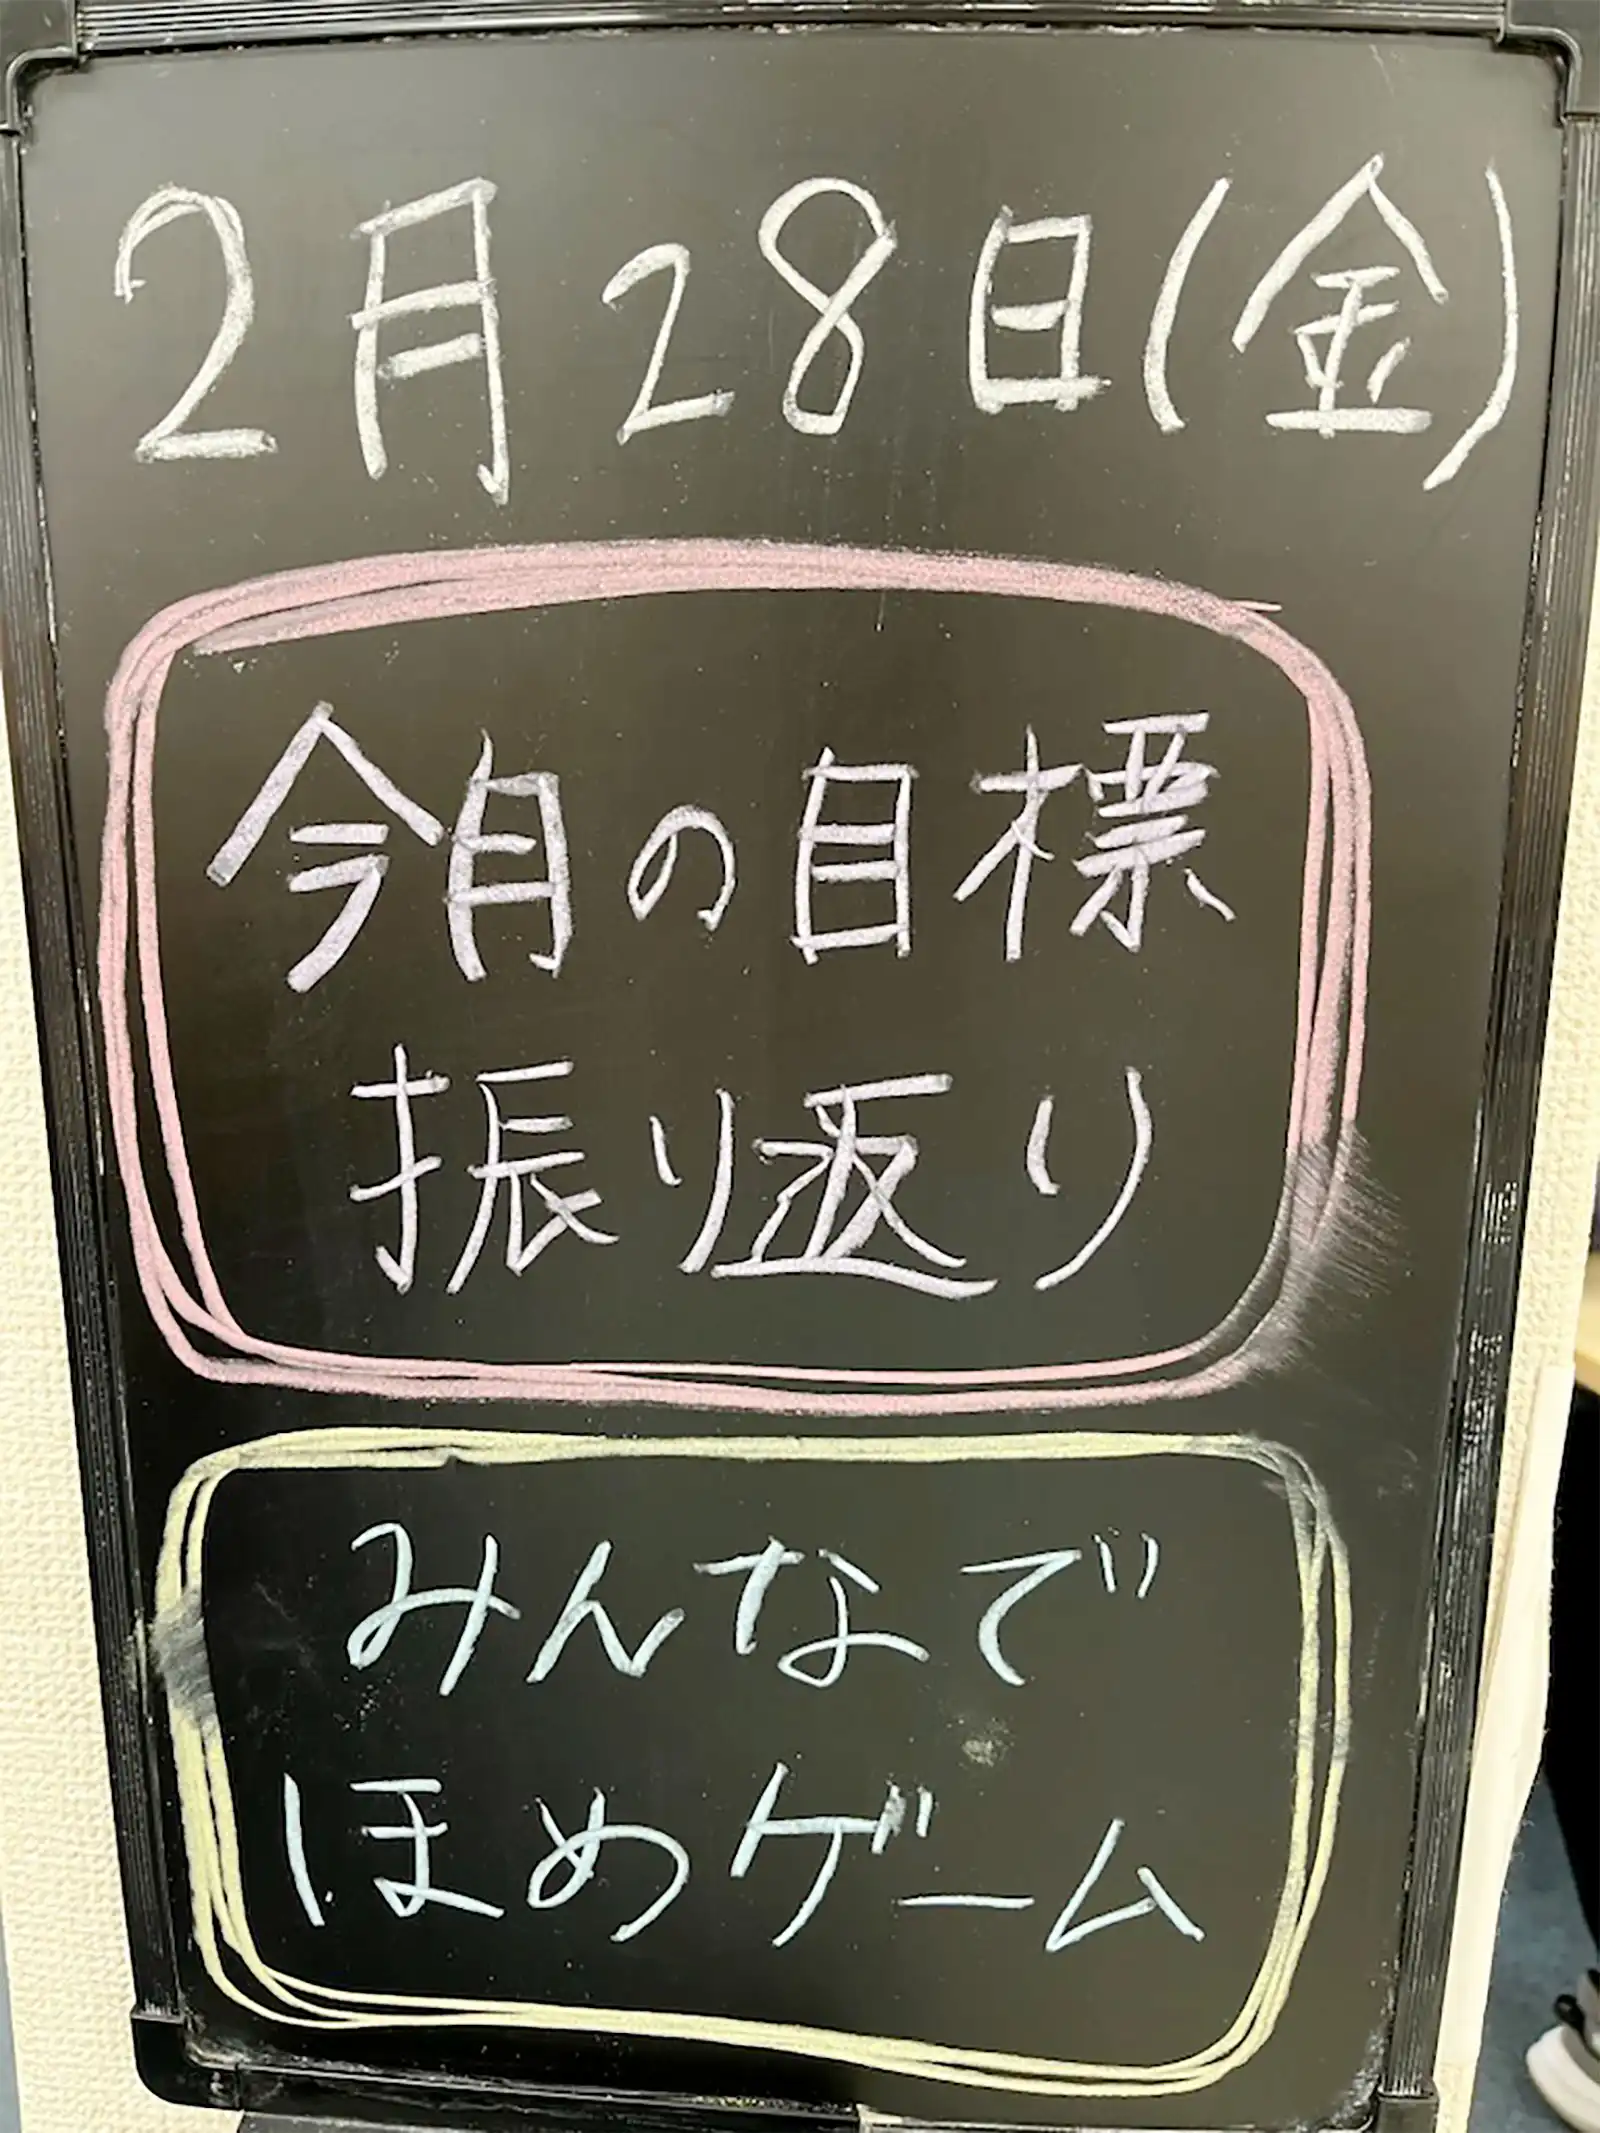 2月28日(金)
今月の目標
振り返り
みんなで
ほめゲーム